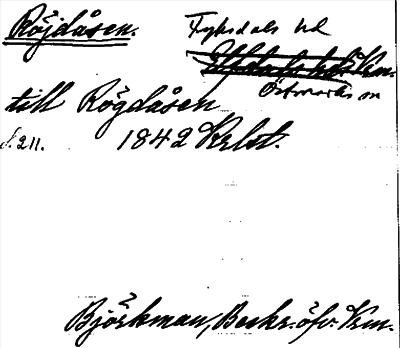 Röjdåsen. Fryksdals hd
Östmarks sn
till Rögdåsen
s. 211. 1842 Krlst.
Björkman, Beskr. öfv. Vrm.